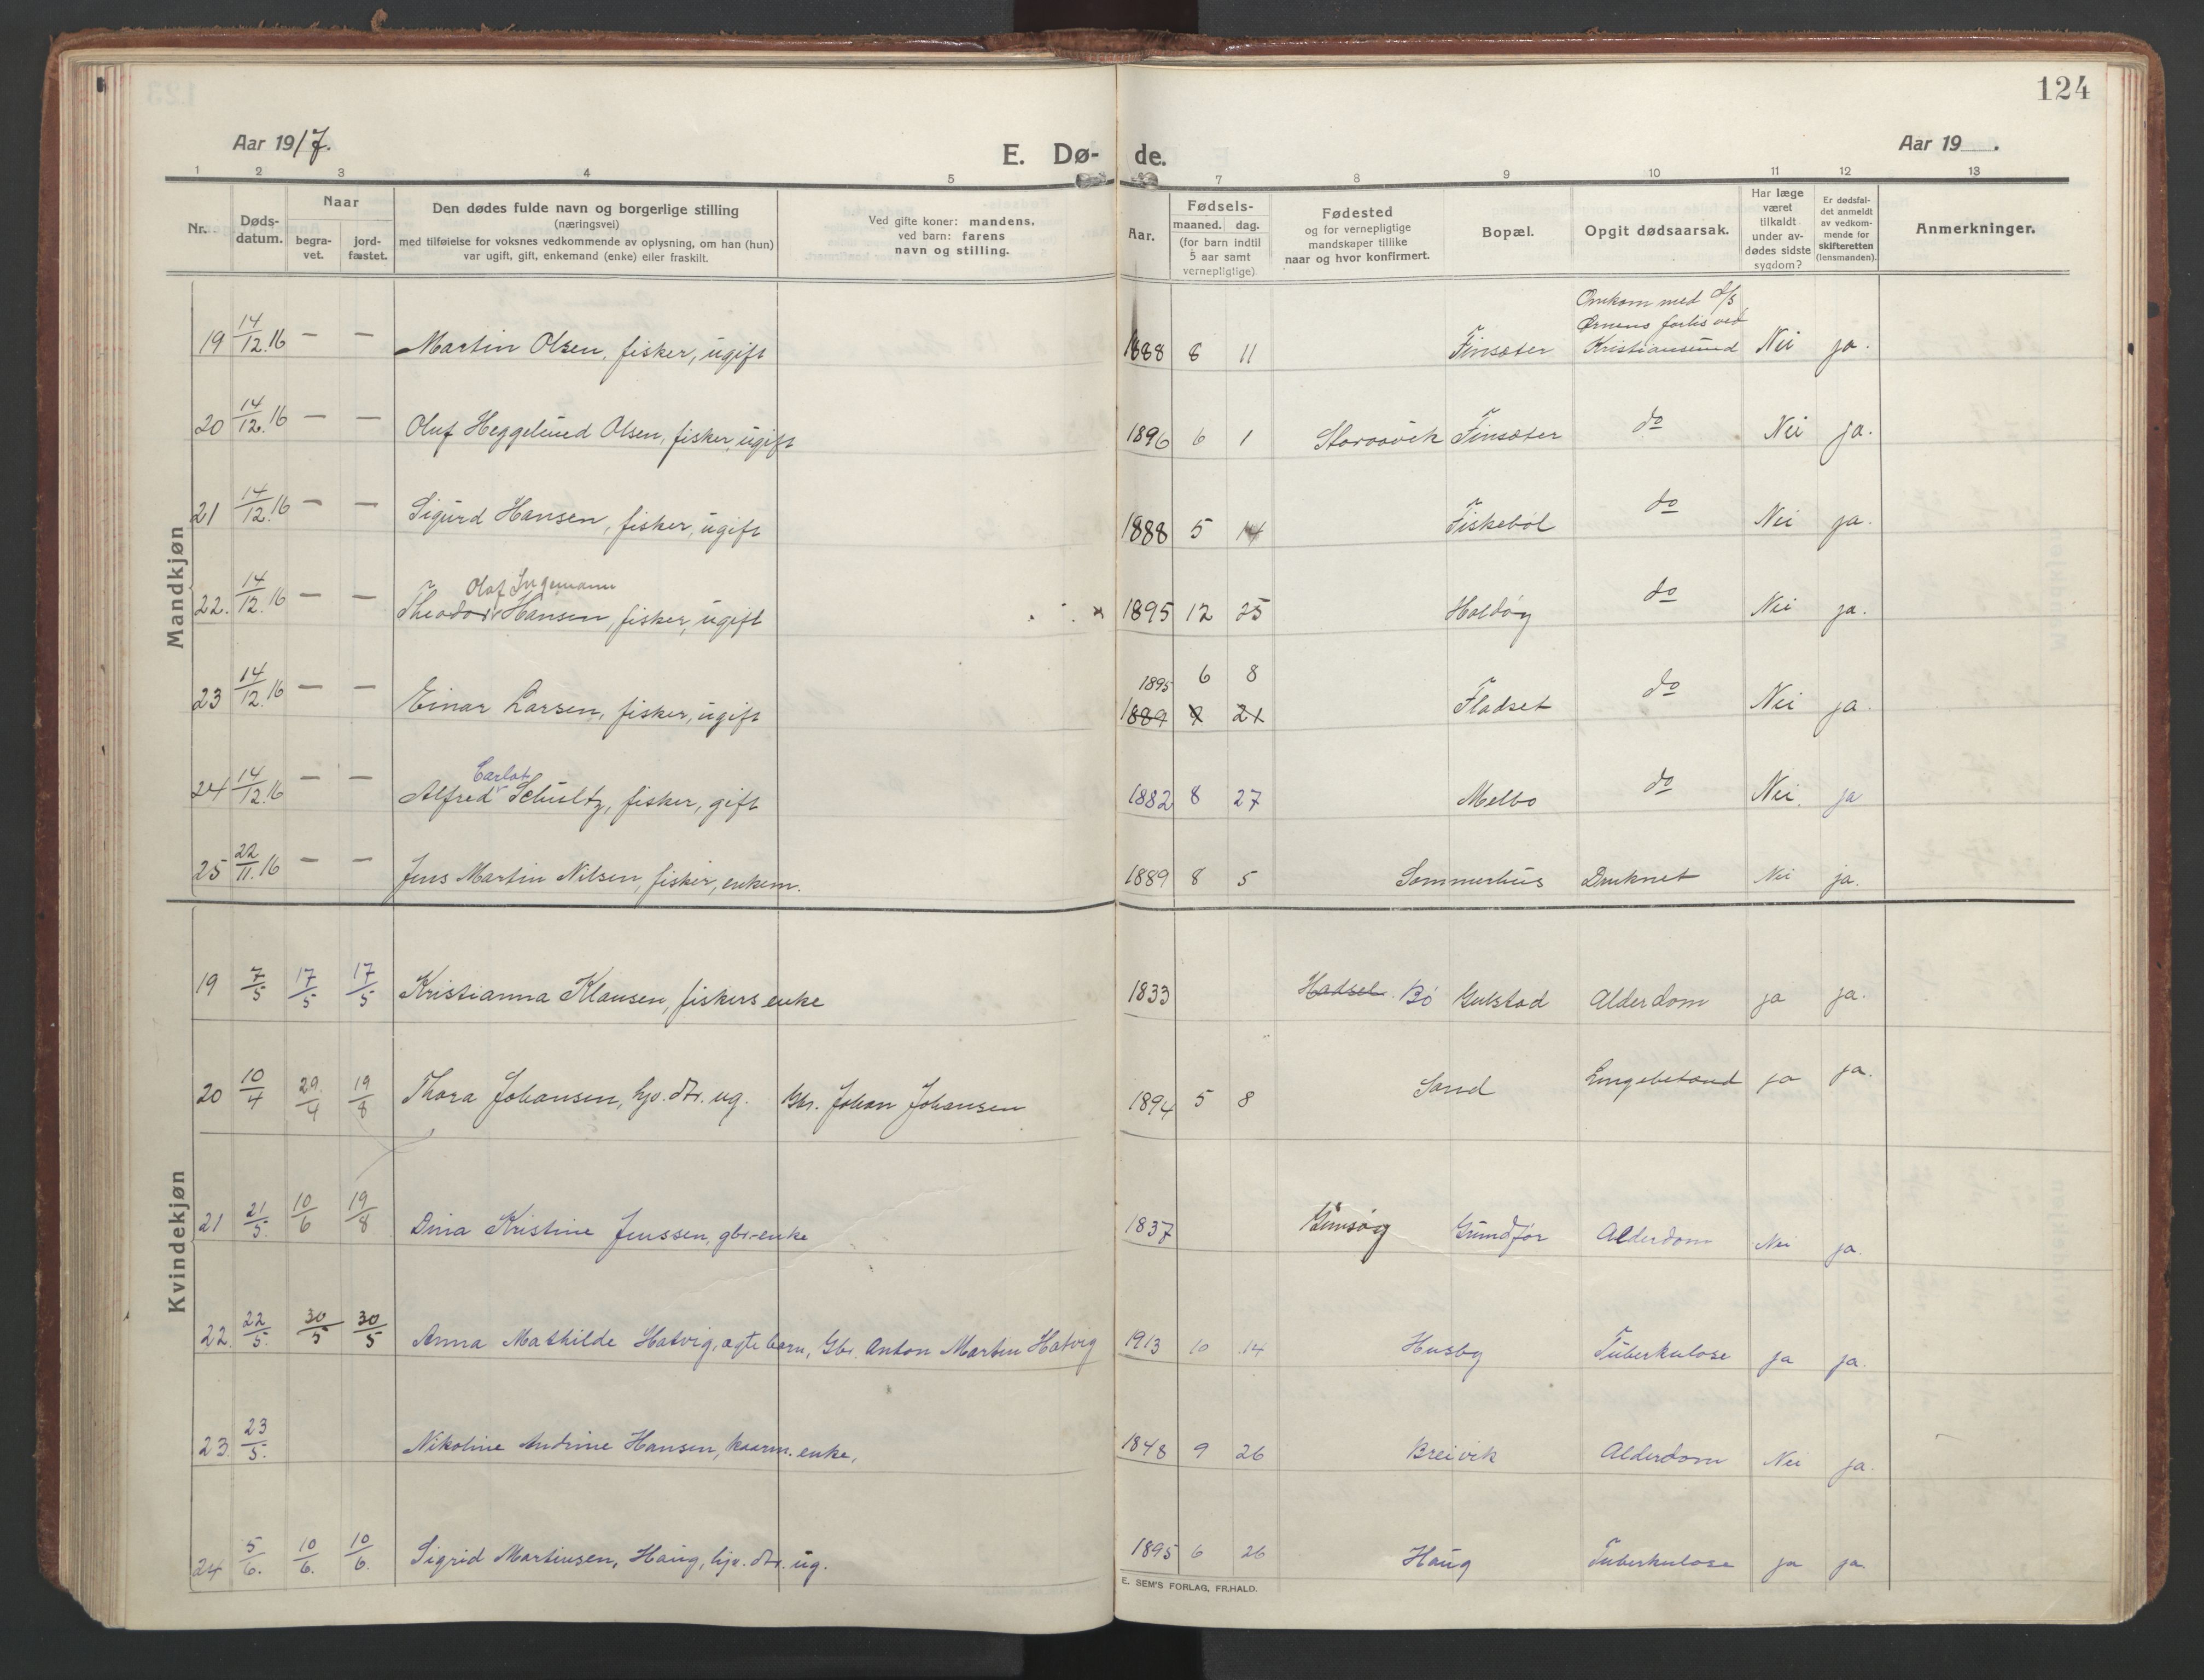 124
Aar 1917.
E. Dø- de.
Aar 19 .
1 2 3 4 5 6 7 8 9 10 11 12 13
Nr.
Døds-
datum.
Naar
begra-
vet.
jord-
fæstet.
Den dødes fulde navn og borgerlige stilling
(næringsvei)
med tilføielse for voksnes vedkommende av oplysning, om han (hun)
var ugift, gift, enkemand (enke) eller fraskilt.
Ved gifte koner: mandens.
ved barn: farens
navn og stilling.
Aar.
Fødsels-
maaned. dag.
(for barn indtil
5 aar samt
vernepligtige)
Fødested
og for vernepligtige
mandskaper tillike
naar og hvor konfirmert.
Bopæl.
Opgit dødsaarsak.
Har læge
været
tilkaldt
under av-
dødes sidste
sygdom?
Er dødsfal-
det anmeldt
av vedkom-
mende for
skifteretten
(lensmanden).
Anmerkninger.
Mandkjøn
Omkom med d/s
Ørnens forlis ved
19 14/12.16 — — Martin Olsen, fisker, ugift 1888 8 11 Finsæter Kristiansund Nei ja.
20 14/12.16 — — Oluf Heggelund Olsen, fisker, ugift 1896 6 1 Finsæter do Nei ja.
21 14/12.16 — — Sigurd Hansen, fisker, ugift 1888 5 14 Fiskebøl do Nei ja.
Olaf Ingemann
22. 14/12.16 — — Theodor Hansen, fisker, ugift × 1895 12 25 Holdøy do Nei ja.
1895 6 8
23 14/12.16 — — Einar Larsen, fisker, ugift 1889 9 21 Fladset do Nei ja.
Carlot
24 14/12.16 — — Alfred Schultz, fisker, gift 1882 8 27 Melbo do Nei. ja
25 22/11.16 — — Jens Martin Nilsen, fisker, enkem. 1889 8 5 Sommerhus Druknet Nei ja.
Kvindekjøn
19 7/5 17/5 17/5 Kristianna Klausen, fiskers enke 1833 Hadsel. Bø Gulstad Alderdom ja ja.
20 10/4 29/4 19/8 Thora Johansen, hjv. dtr. ug. Gbr. Johan Johansen 1894 5 8 Sand Lungebetænd ja ja.
21 21/5. 10/6 19/8 Dina Kristine Jenssen, gbr.-enke 1837 Gimsøy Grundfør Alderdom Nei ja.
22. 22/5. 30/5 30/5 Anna Mathilde Hatvig, ægte barn, Gbr. Anton Martin Hatvig 1913 10 14 Husby Tuberkulose ja ja.
23. 23/5. Nikoline Andrine Hansen, kaarm. enke, 1848 9 26 Breivik Alderdom Nei ja.
24 5/6. 10/6. 10/6. Sigrid Martinsen, Haug, hjv. dtr. ug. 1895 6 26 Haug Tuberkulose ja ja.
E. SEM'S FORLAG, FR.HALD.